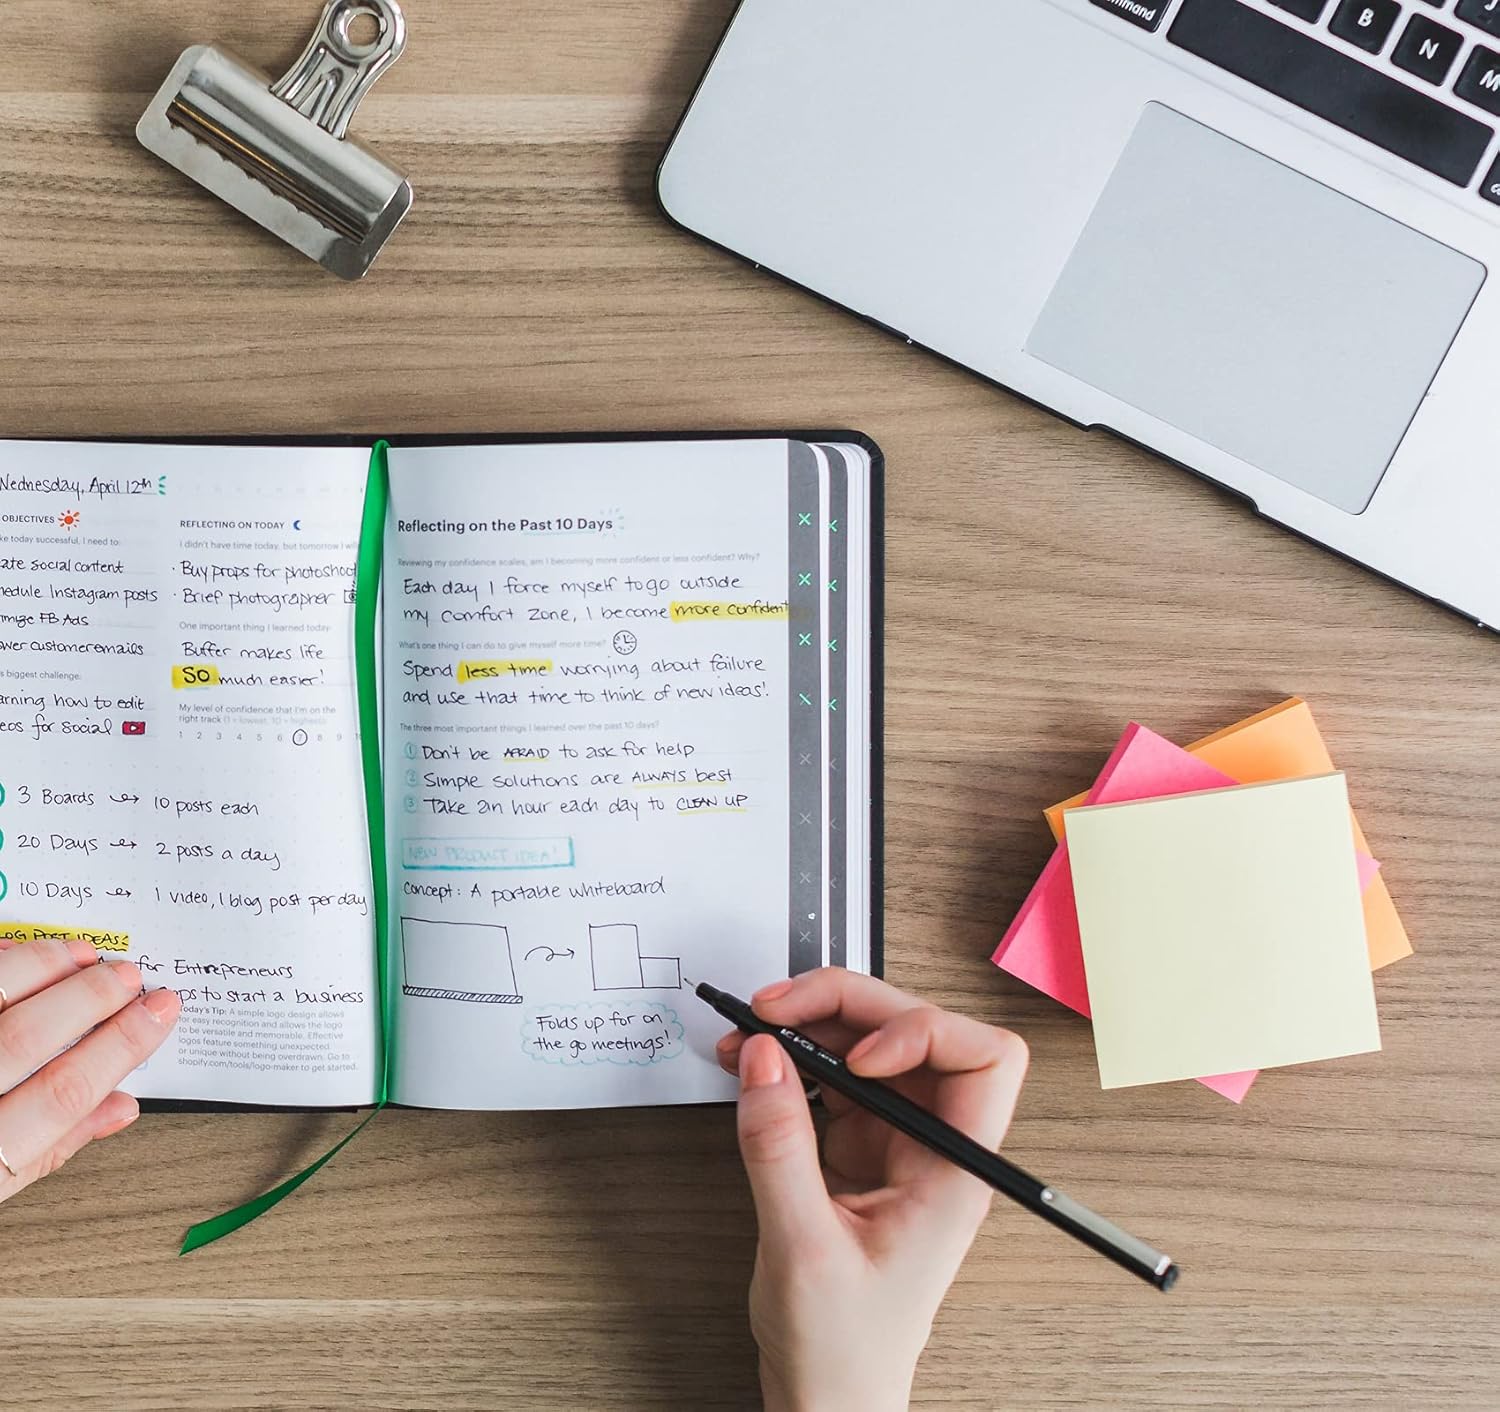 Wednesday, April 12th
OBJECTIVES
today successful, I need to:
social content
Instagram posts
FB Ads
customer emails
biggest challenge:
how to edit
for social
REFLECTING ON TODAY
I didn't have time today, but tomorrow I will
· Buy props for photoshoot
· Brief photographer
One important thing I learned today:
Buffer makes life
SO much easier!
My level of confidence that I'm on the
right track (1 = lowest, 10 = highest):
1 2 3 4 5 6 7 8 9
3 Boards → 10 posts each
20 Days → 2 posts a day
10 Days → 1 video, 1 blog post per day
POST IDEAS:
for Entrepreneurs
to start a business
Today's Tip: A simple logo design allows
for easy recognition and allows the logo
to be versatile and memorable. Effective
logos feature something unexpected
or unique without being overdrawn. Go to
shopify.com/tools/logo-maker to get started.
Reflecting on the Past 10 Days
Reviewing my confidence scales, am I becoming more confident or less confident? Why?
Each day I force myself to go outside
my comfort zone, I become more confident
What's one thing I can do to give myself more time?
Spend less time worrying about failure
and use that time to think of new ideas!
The three most important things I learned over the past 10 days?
1 Don't be AFRAID to ask for help
2 Simple solutions are ALWAYS best
3 Take an hour each day to CLEAN UP
NEW PRODUCT IDEA!
Concept: A portable whiteboard
Folds up for on
the go meetings!
command
B
N
M